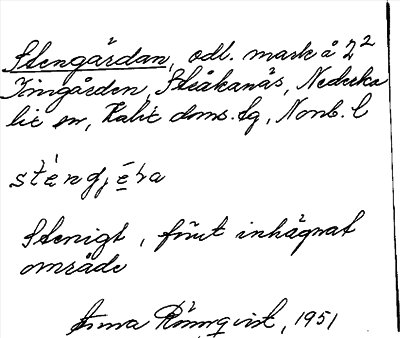 Stengärdan, odl. mark å 2²
Kingården, Stråkanäs, Nederka
lix sn, Kalix doms. sg, Norrb. l
sténgjéra
Stenigt, förut inhägnat
område
Anna Rönnqvist, 1951